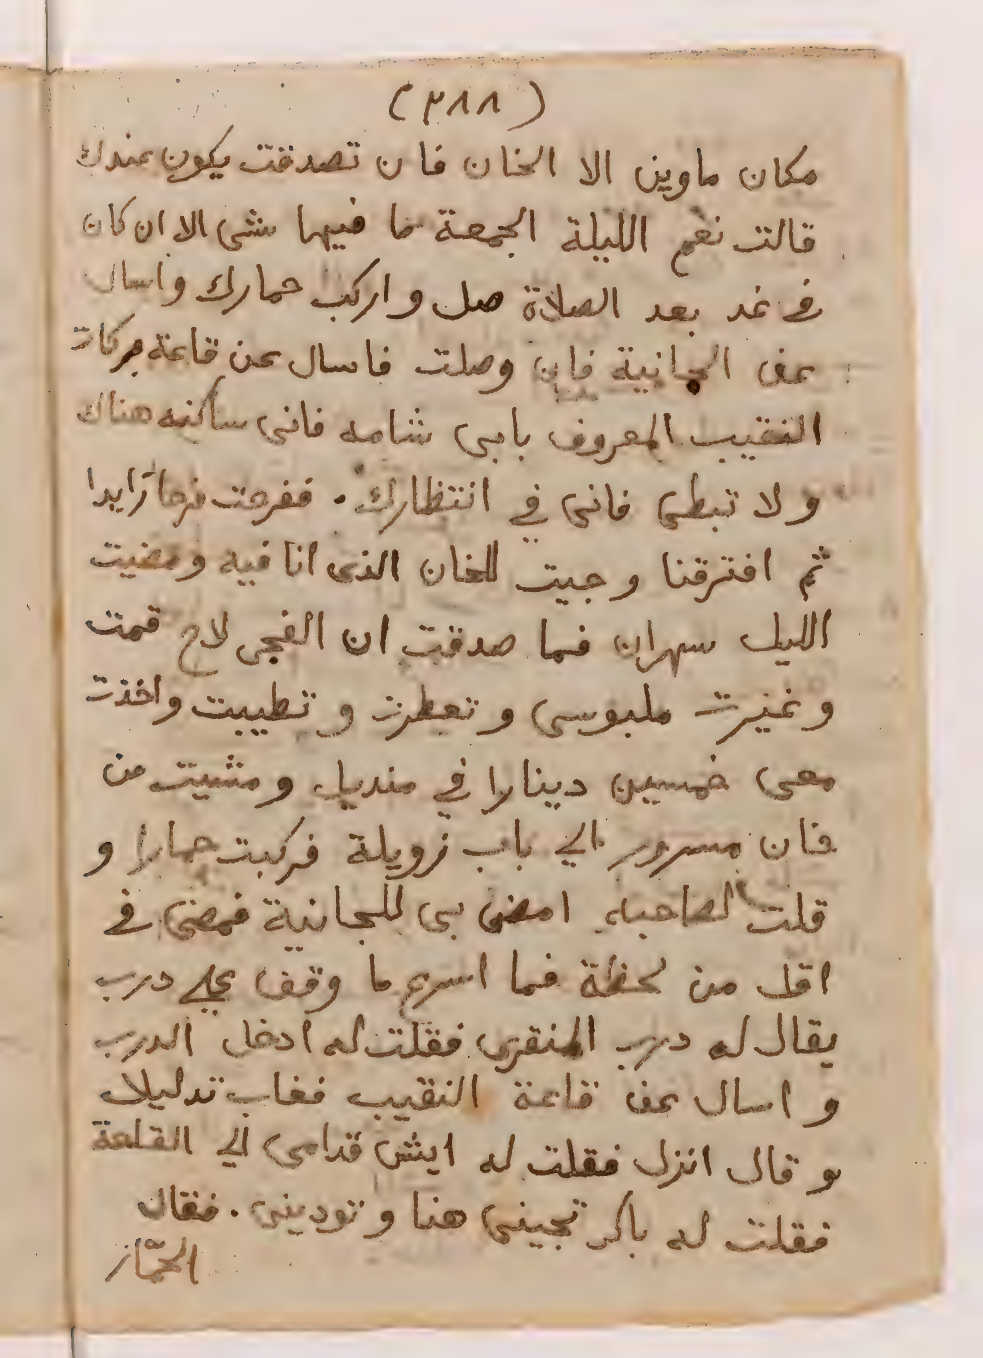 (٣٨٨)
مكان ماوين الا الخان فان تصدقت يكون عندك
قالت نعم الليلة الجمعة ما فيها شى الا ان كان
في غد بعد الصلاة صل واركب حمارك واسال
عن الحبانية فان وصلت فاسال عن قاعة بركات
النقيب المعروف بابى شامه فانى ساكنه هناك
ولا تبطى فانى في انتظارك . ففرحت فرحا زايدا
ثم افترقنا وجيت للخان الذى انا فيه ومضيت
الليل سهران فما صدقت ان الفجر لاح قمت
وغيرت ملبوسى وتعطرت وتطيبت واخذت
معى خمسين دينارا في منديل ومشيت من
خان مسرور الي باب زويلة فركبت حمارا و
قلت لصاحبه امض بى للحبانية فمضى في
اقل من لحظة فما اسرع ما وقف على درب
يقال له درب المنقرى فقلت له ادخل الدرب
واسال عن قاعة النقيب فغاب قليلا
وقال انزل فقلت له امش قدامى الي القاعة
فقلت له باكر تجينى هنا وتودينى . فقال
الحمّار